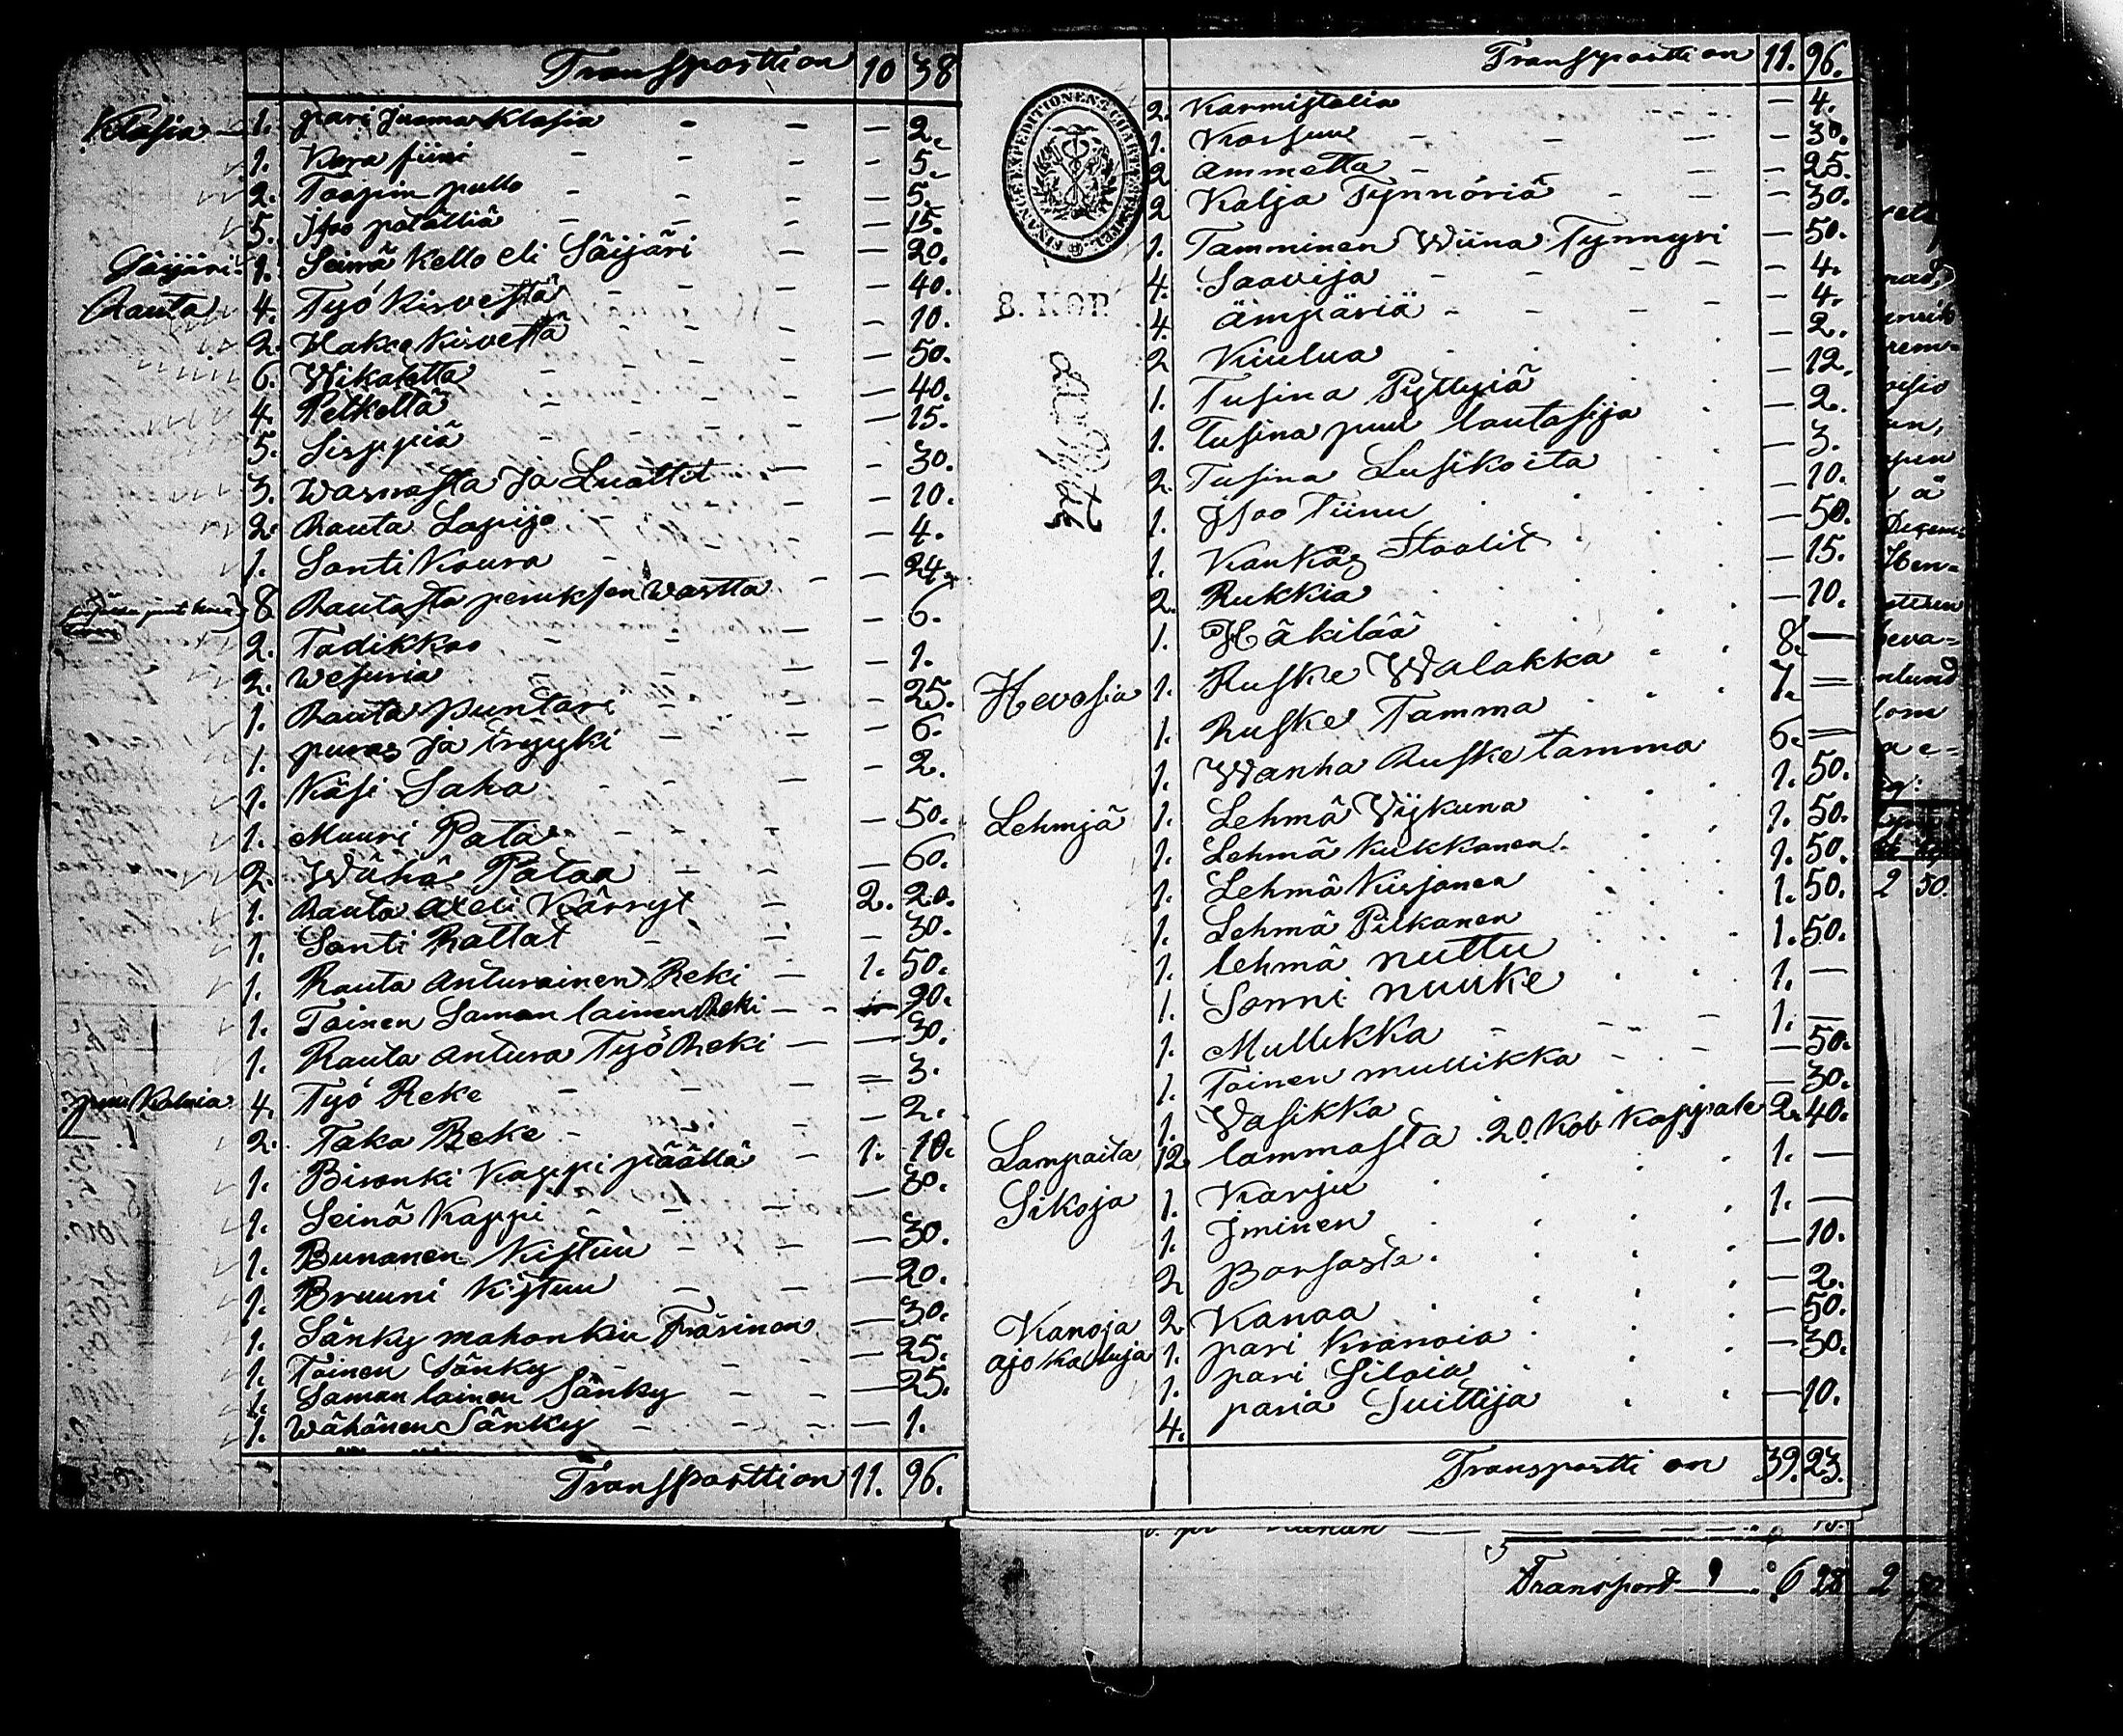 Transportti on 10 38
Klasia 1. pari juoma Klasia - - - 2.
1. Kora fiini - - - 5.
2. Toopin pullo - - - 5.
5. Isoo potällia - - - 15.
Säijäri 1. Seinä Kello eli Säijäri - 20.
Rauta 4. Työ Kirvestä - - - 40.
2. Hakco Kirvettä - - - 10.
6. Wikatetta - - - 50.
4. Petkeltä - - - 40.
5. Sirppiä - - - 15.
3. Warrasta Ja Luottit - - 30.
2. Rauta Lapijo - - 10.
1. Sonti Koura - - 4.
8 Rautasta peniksen Wartta - 24.
2. Tadikkoo - - - 6.
2. Wesuria - - 1.
1. Rauta puntari - - - 25.
1. puras Ja tryyki - - - 6.
1. Käsi Saha - - - 2.
1. Muuri Pata - - - 50.
2. Wähä Pataa - - - 60.
1. Rauta Axeli Kärryt - 2. 20.
1. Sonti Rattat - - - 30.
1. Rauta Anturainen Reki - 1. 50.
1. Toinen Saman lainen Reki - - 90.
1. Rauta Antura Työ Reki - - 30.
puu Kaluia 4. Työ Reke - - - 3.
2. Taka Reke - - - 2.
1. Bironki Kappi päällä - 1. 10.
1. Seinä Kappi - - - 30.
1. Bunanen Kistuu - - - 30.
1. Bruuni Kistuu - - - 20.
1. Sänky mahonkin Fräsinon - 30.
1. Toinen Sänky - - - 25.
1. Saman lainen Sänky - - - 25.
1. Wähänen Sänky - - - 1.
Transportti on 11. 96.
FINANCE EXPEDITIONEN: CHARTÆ STEMPEL
8. KOP.
Transportti on 11. 96.
2. Karmistolia - 4.
1. Korsuu - - - 30.
2 ammetta - - - 25.
2 Kalja Tynnöriä - - - 30.
1. Tamminen Wiina Tynnyri - 50.
4. Saavija - - - 4.
4. ämpäriä - - - 4.
2 Kiulua - 2.
1. Tusina Pyttyiä - 12.
1. Tusina puu lautasija - 2.
2 Tusina Lusikoita - 3.
1. Isoo Tiinu - 10.
1. Kankas Stoolit - 50.
2. Rukkia - 15.
1. Häkilää - 10.
Hevosia 1. Ruske Walakka 8. -
1. Ruske Tamma 7. -
1. Wanha Ruske tamma 6. -
Lehmjä 1. Lehmä Wijkuna 1. 50.
1. Lehmä Kukkonen 1. 50.
1. Lehmä Kirjonen 1. 50.
1. Lehmä Pilkanen 1. 50.
1. lehmä nuttu 1. 50.
1. Sonni nuuke 1. -
1. Mullikka - - - 1. -
1. Toinen mullikka - - - 50.
1. Vasikka - 30.
Lampaita 12 lammasta 20 Kob Kappale 2. 40.
Sikoja 1. Karju 1. -
1. Iminen 1. -
2 Porsasta - 10.
Kanoja 2 Kanaa - 2.
ajo Kaluja 1. pari Kranoia - 50.
1. pari Siloia - 30.
4. paria Suittija - 10.
Transportti on 39. 23.
2 50.
Transport 6 28 2 50